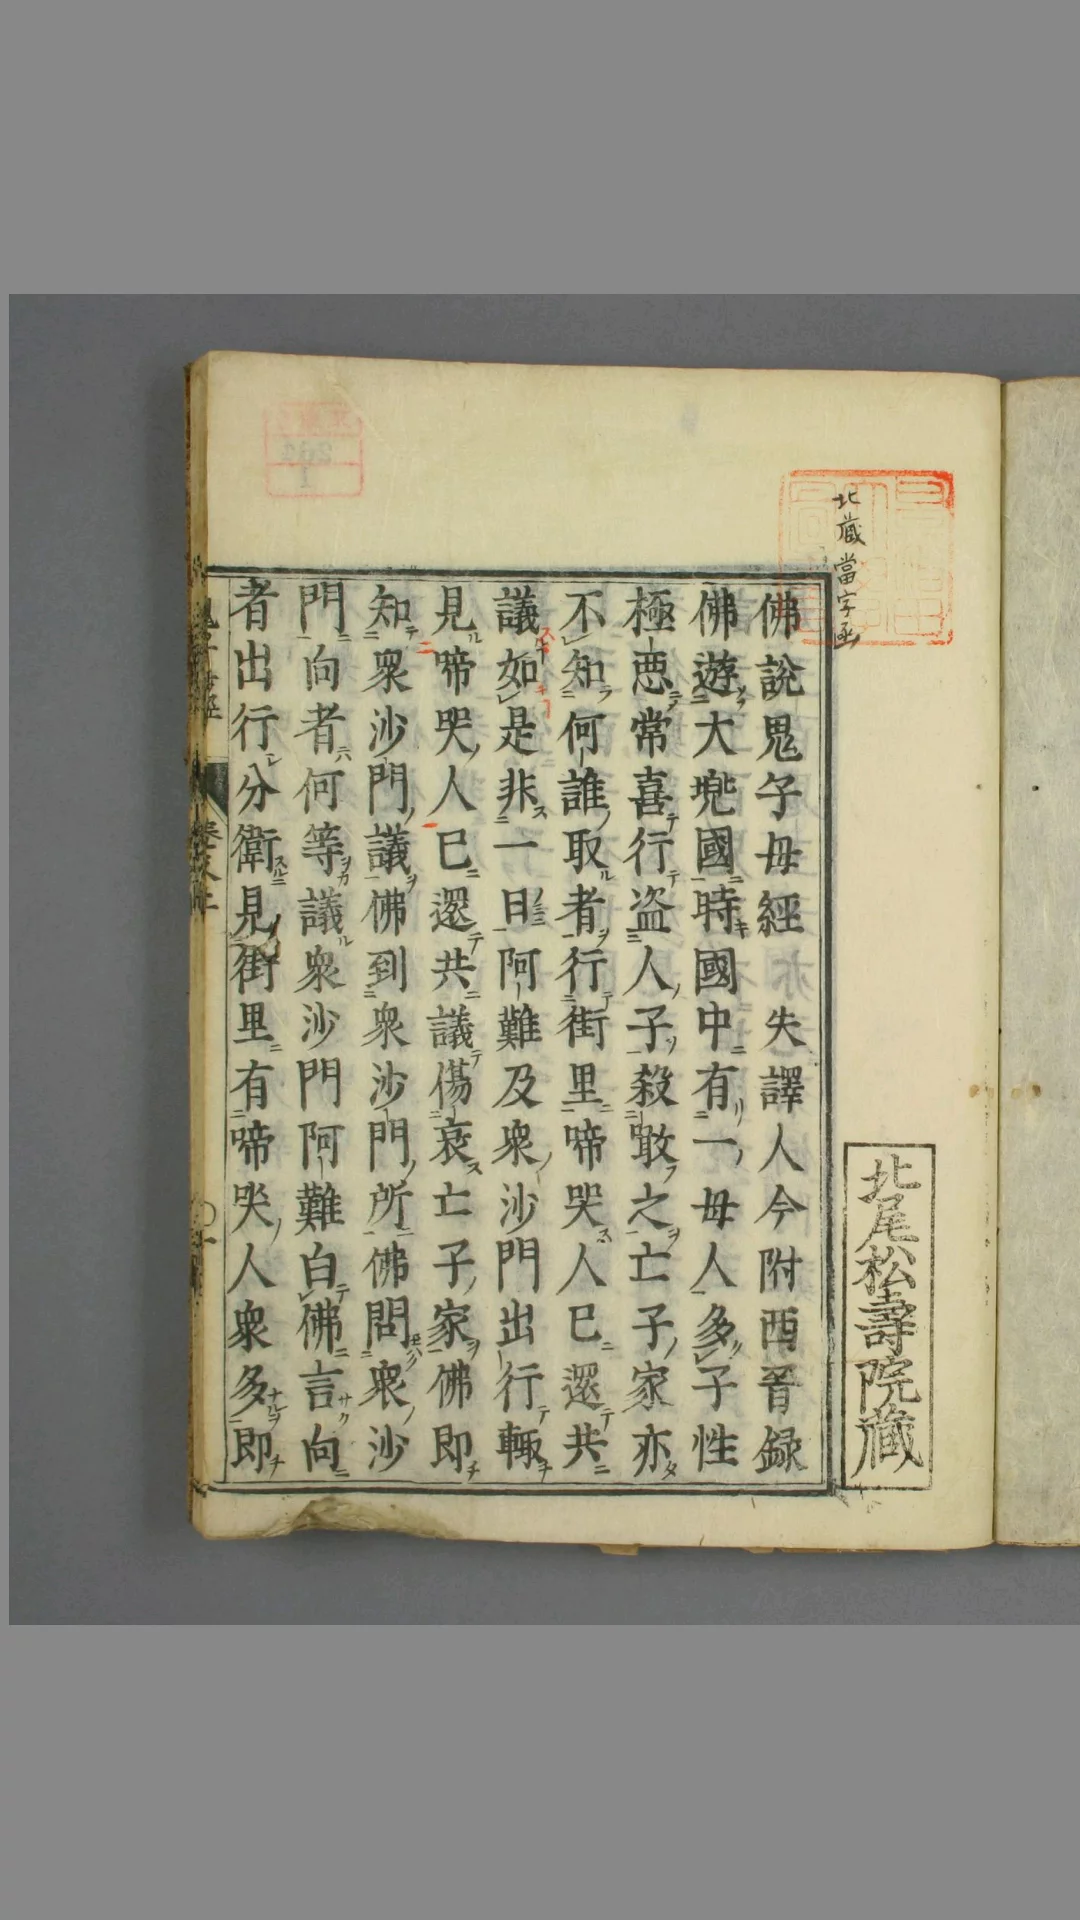 北藏當字函
北尾松壽院藏
佛說鬼子母經　失譯人今附西晉録
佛遊大兠國時國中有一母人多子性
極惡常喜行盗人子殺噉之亡子家亦
不知何誰取者行街里啼哭人已還共
議如是非一日阿難及衆沙門出行輙
見啼哭人已還共議傷哀亡子家佛即
知衆沙門議佛到衆沙門所佛問衆沙
門向者何等議衆沙門阿難白佛言向
者出行分衛見街里有啼哭人衆多即